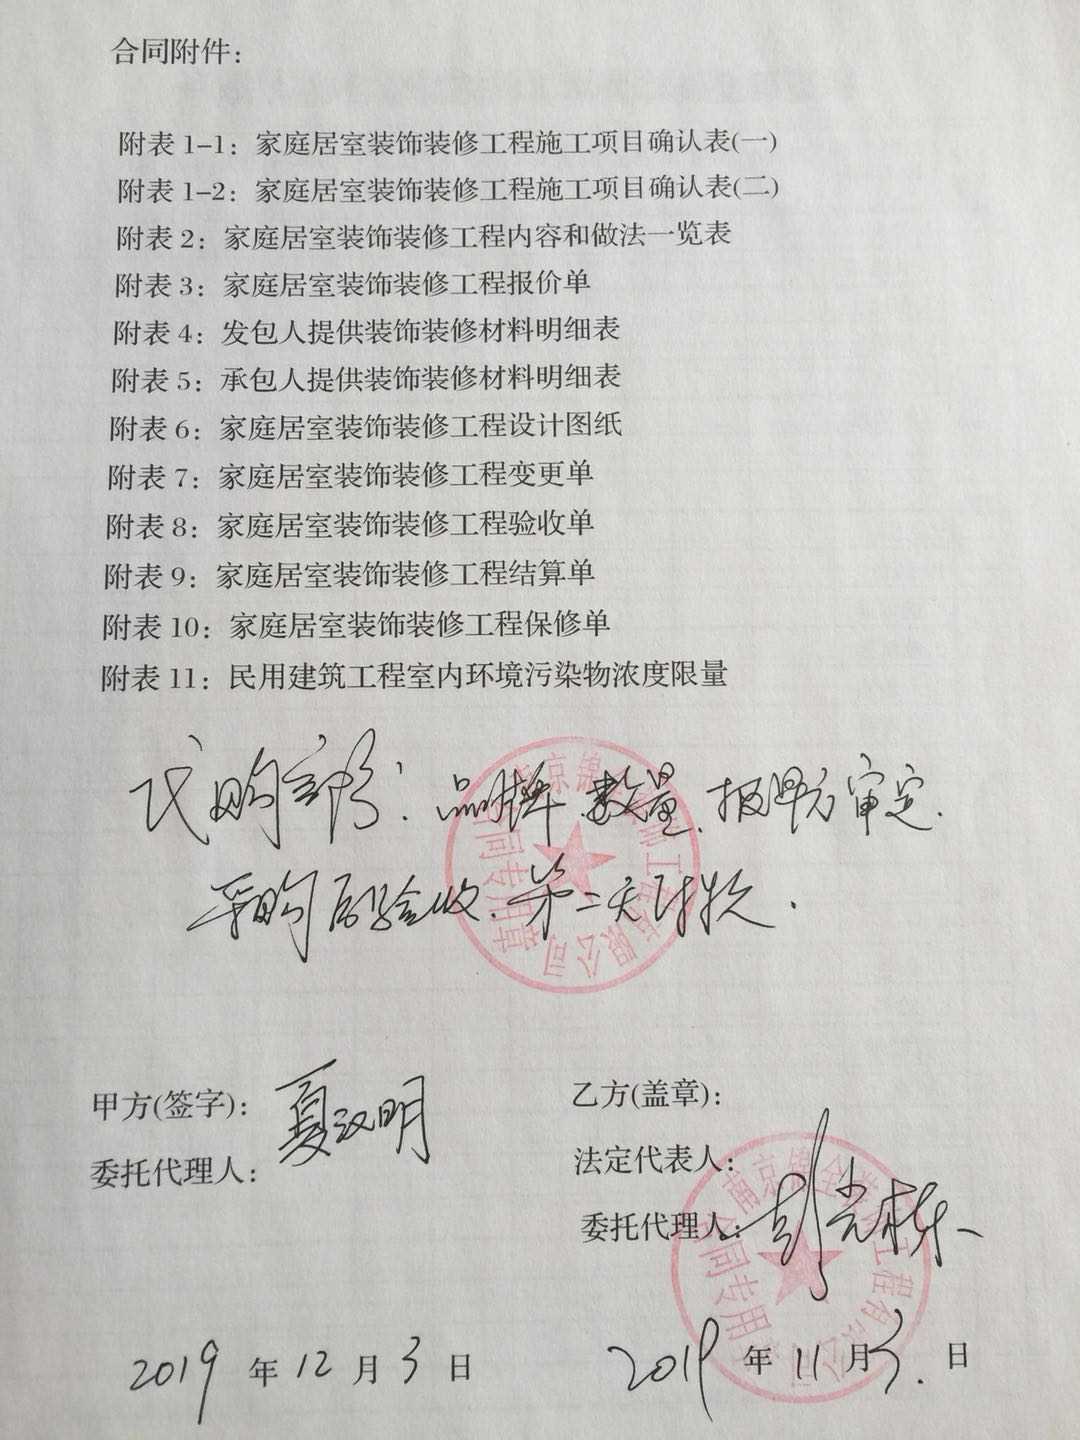 合同附件：
附表 1-1：家庭居室装饰装修工程施工项目确认表(一)
附表 1-2：家庭居室装饰装修工程施工项目确认表(二)
附表 2：家庭居室装饰装修工程内容和做法一览表
附表 3：家庭居室装饰装修工程报价单
附表 4：发包人提供装饰装修材料明细表
附表 5：承包人提供装饰装修材料明细表
附表 6：家庭居室装饰装修工程设计图纸
附表 7：家庭居室装饰装修工程变更单
附表 8：家庭居室装饰装修工程验收单
附表 9：家庭居室装饰装修工程结算单
附表 10：家庭居室装饰装修工程保修单
附表 11：民用建筑工程室内环境污染物浓度限量
代购部分：品牌.数量.报甲方审定.
采购后验收.第二天付款.
合同专用章
甲方(签字)：夏汉明
委托代理人：
乙方(盖章)：
法定代表人：
委托代理人：彭光栋
合同专用章
2019 年 12 月 3 日
2019 年 11 月 3 日